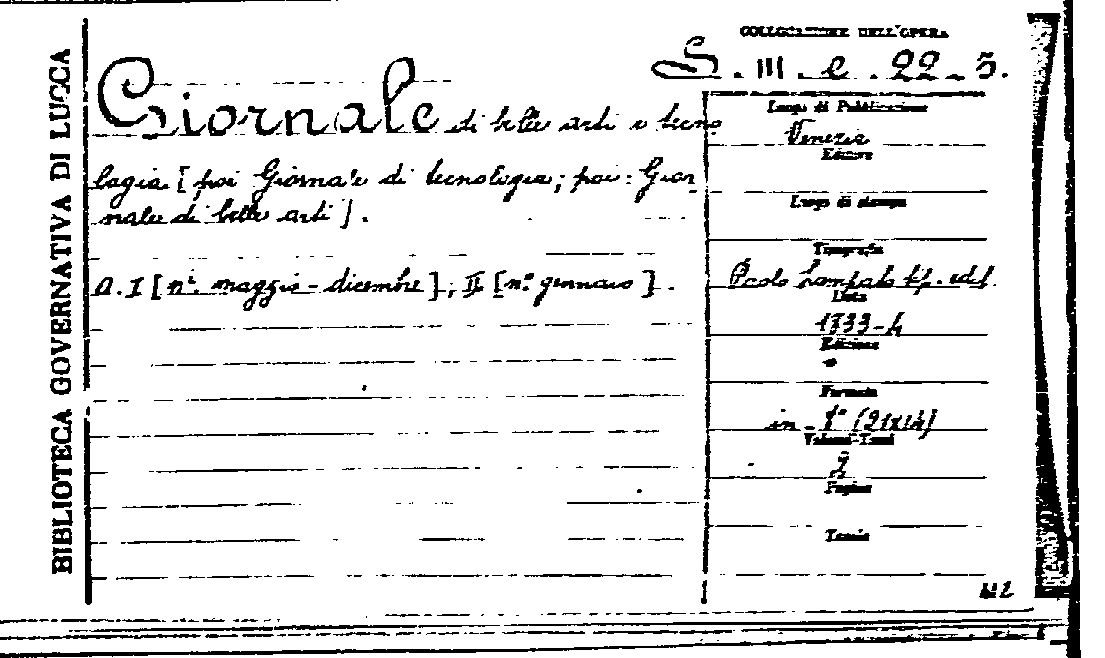 BIBLIOTECA GOVERNATIVA DI LUCCA
COLLOCAZIONE DELL'OPERA
S. III. e. 22-5.
Giornale di belle arti e tecno
logia [poi Giornale di tecnologia; poi: Gior
nale di belle arti].
a. I [nⁱ. maggio - dicembre]; II [n.º gennaio].
Luogo di Pubblicazione
Venezia
Editore
Luogo di stampa
Tipografia
Paolo Lampato tip. edit.
Data
1833-4
Edizione
Formato
in-8° (21x14)
Volumi-Tomi
2
Pagine
Tavole